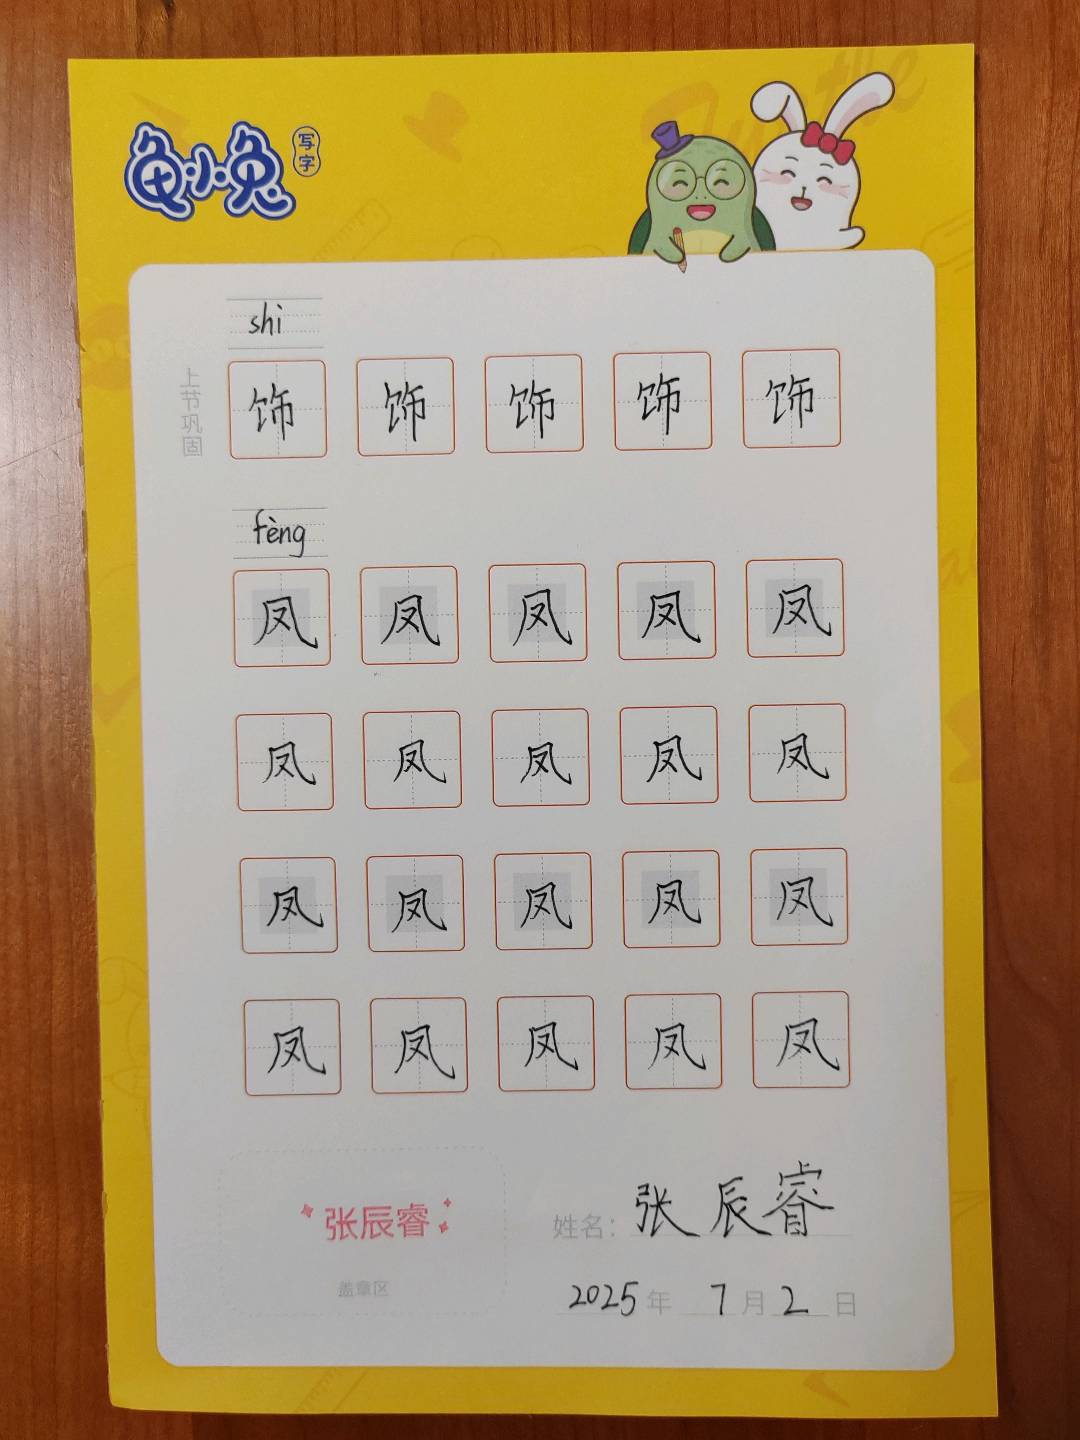 龟小兔 写字
shì
上节巩固
饰 饰 饰 饰 饰
fèng
凤 凤 凤 凤 凤
凤 凤 凤 凤 凤
凤 凤 凤 凤 凤
凤 凤 凤 凤 凤
张辰睿
盖章区
姓名: 张辰睿
2025 年 7 月 2 日